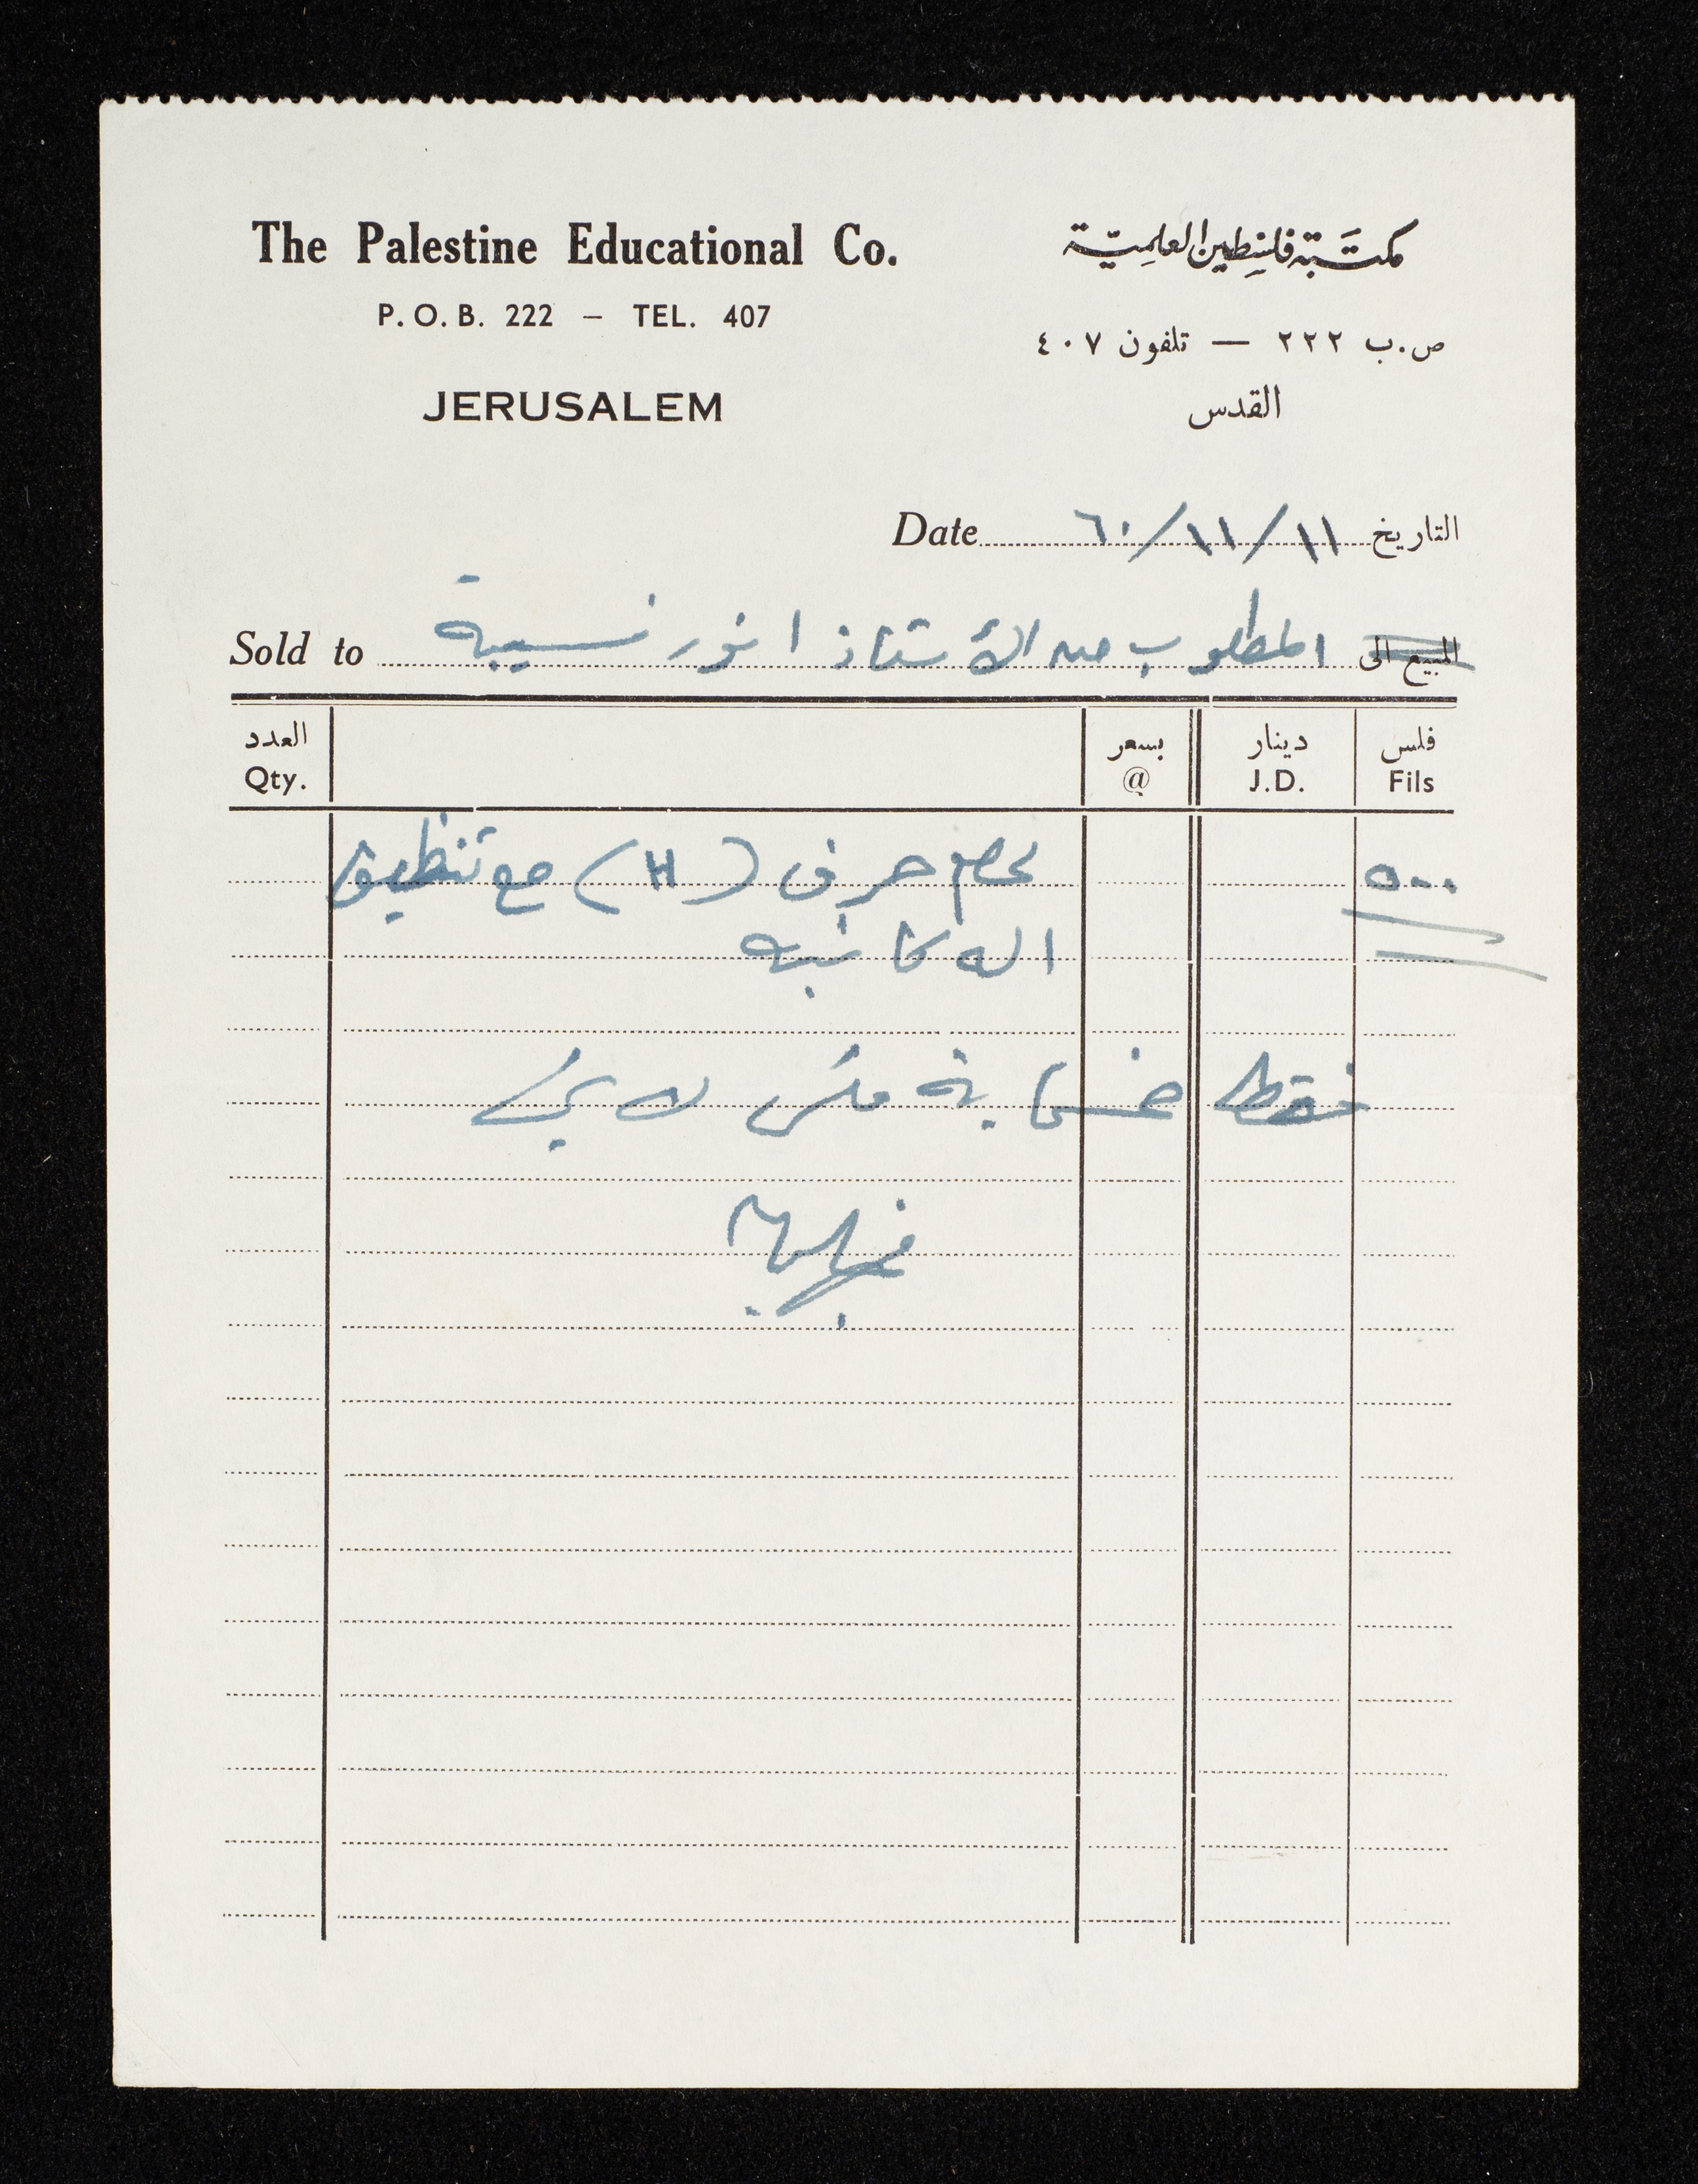 The Palestine Educational Co.
P.O.B. 222 – TEL. 407
JERUSALEM
مكتبة فلسطين العلمية
ص.ب ٢٢٢ — تلفون ٤٠٧
القدس
Date ١١/١١/٦٠ التاريخ
Sold to المطلوب من الأستاذ انور نسيبة المبيع الى
العدد بسعر دينار فلس
Qty. @ J.D. Fils
لحام حرف (H) مع تنظيف ٥٠٠
اله كاتبه
فقط خمسماية فلس لا غير